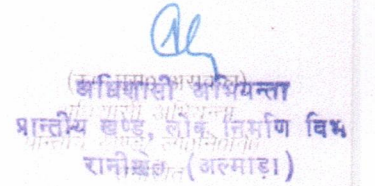 अधिशासी अभियन्ता
प्रान्तीय खण्ड, लोक निर्माण विभ
रानीखेत (अल्माड़ा)